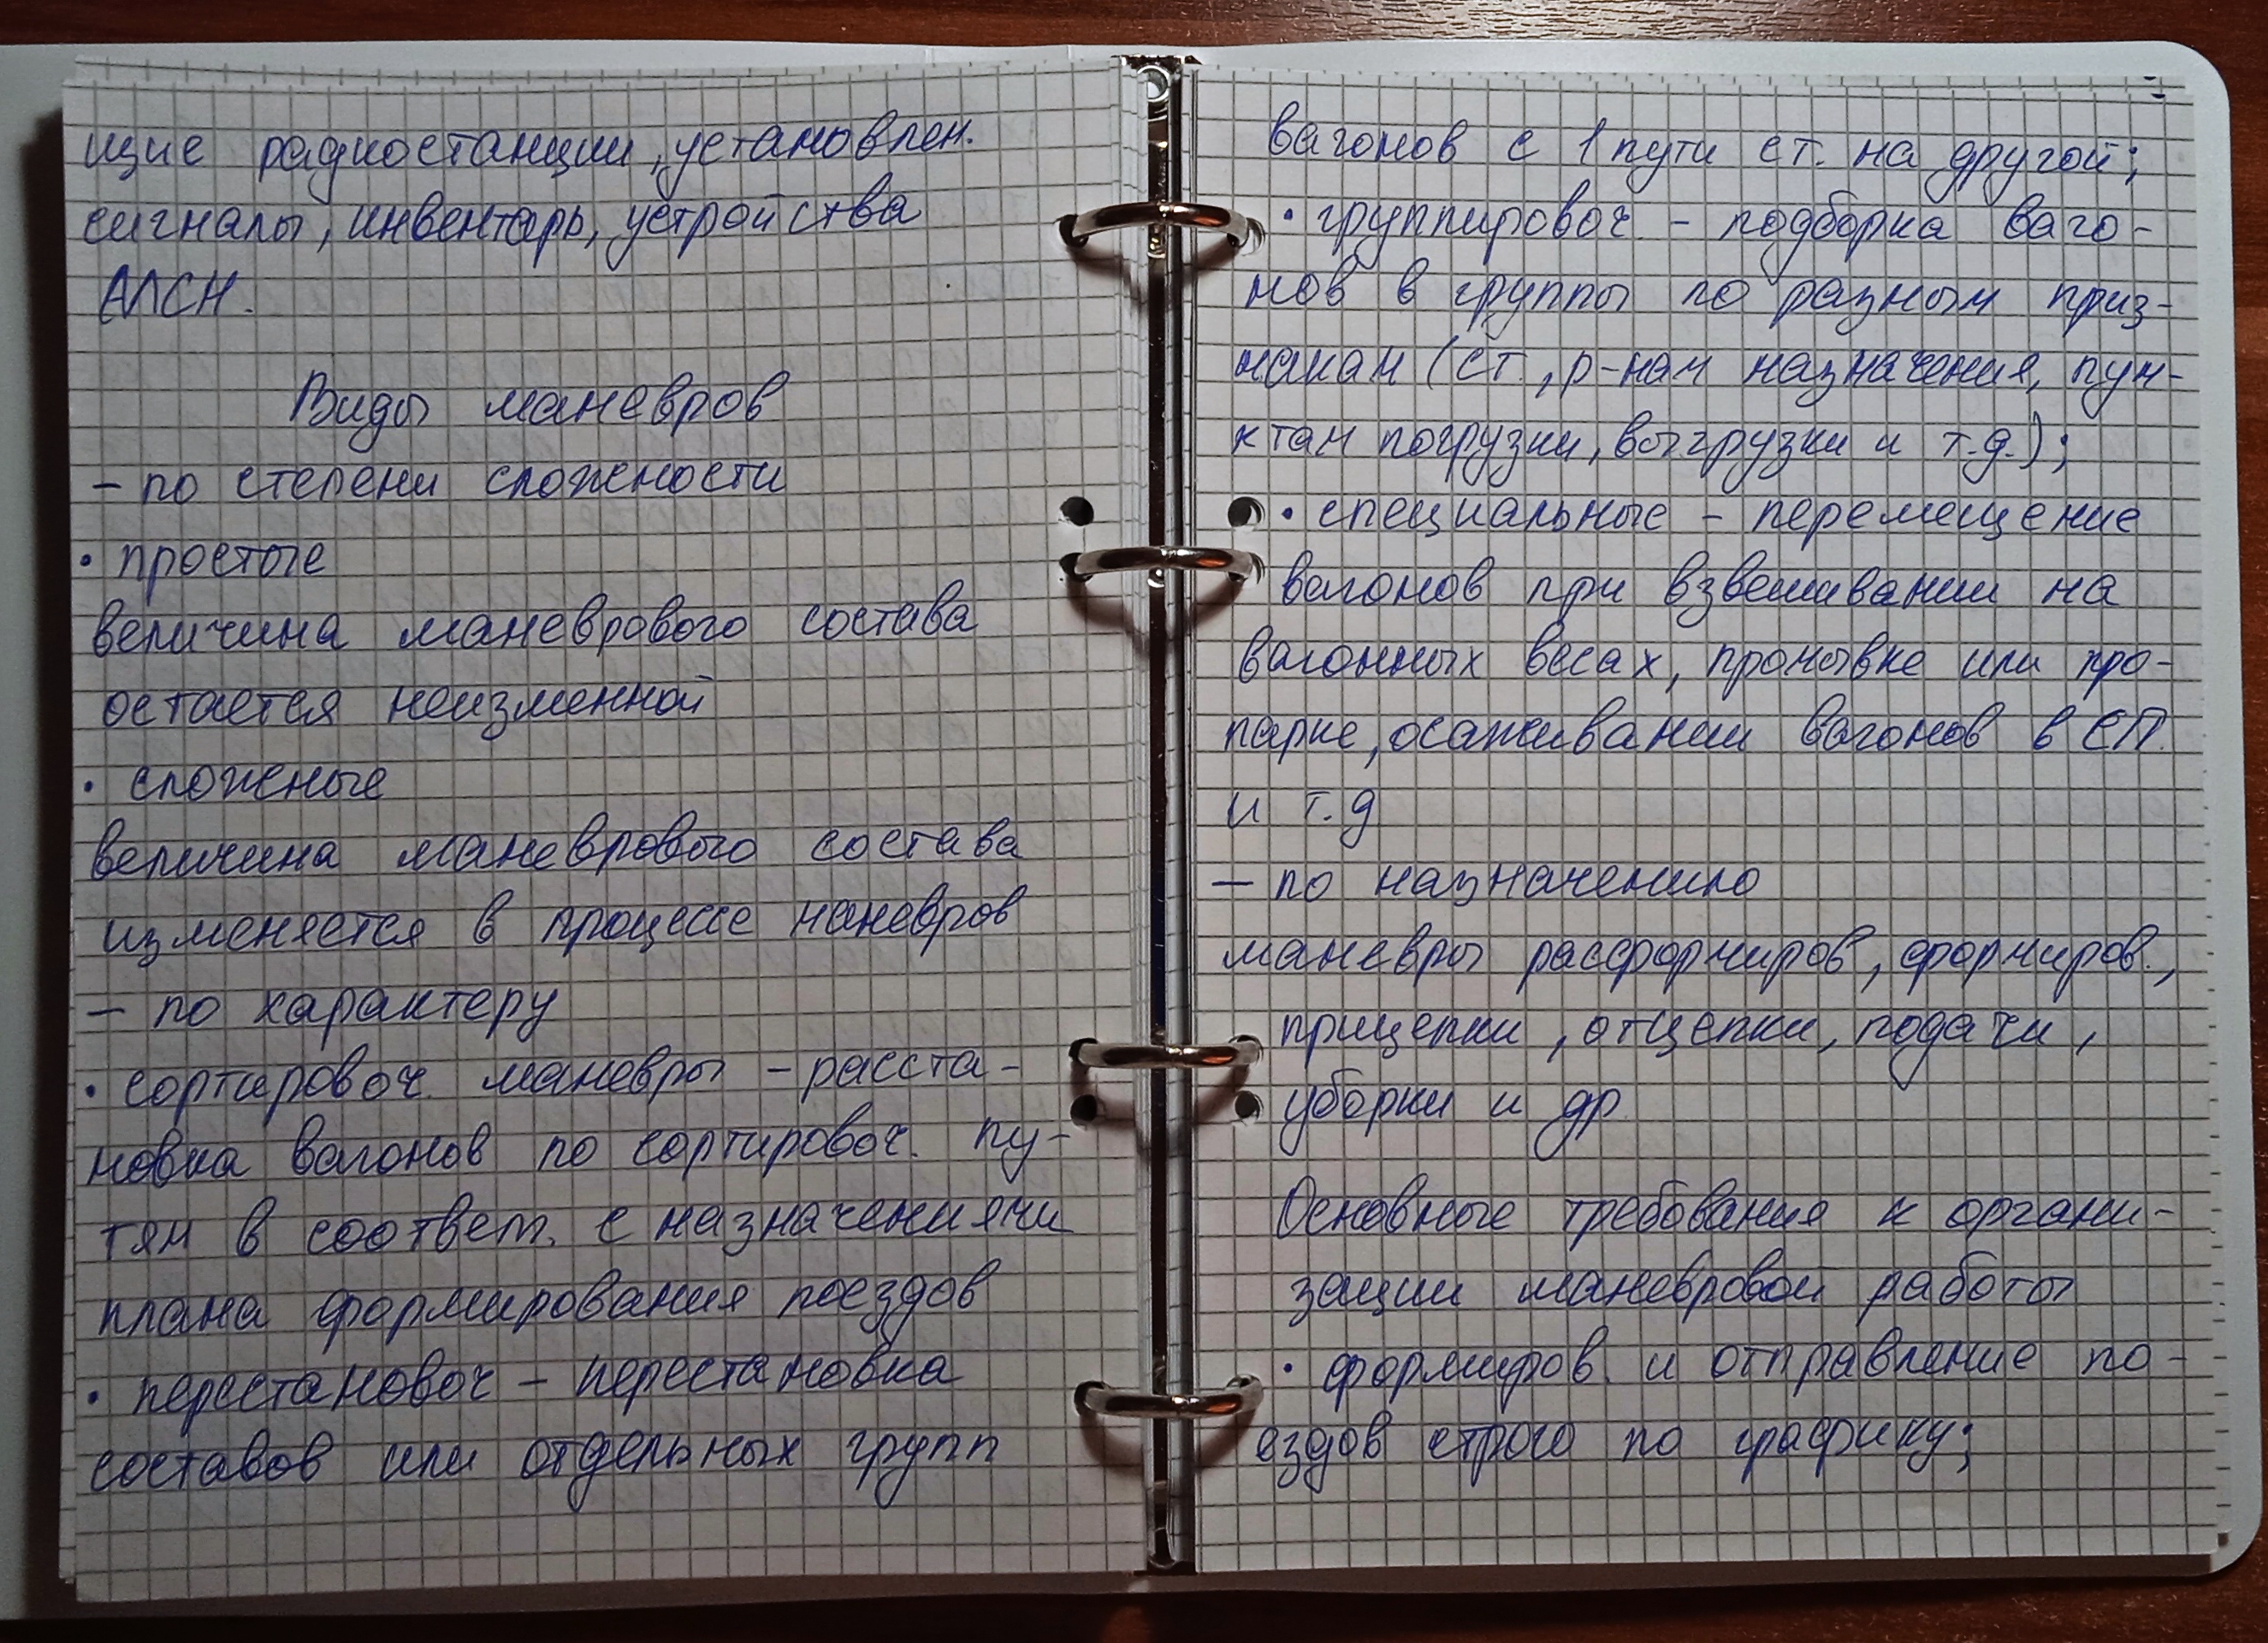 щие радиостанции, установлен.
сигналы, инвентарь, устройства
АЛСН.
Виды маневров
- по степени сложености
• простые
величина маневрового состава
остается неизменной
• сложеные
величина маневрового состава
изменяется в процессе маневров
- по характеру
• сортировоч. маневры - расста-
новка вагонов по сортировоч. пу-
тям в соответ. с назначениями
плана формирования поездов
• перестановоч - перестановка
составов или отдельных групп
вагонов с 1 пути ст. на другой;
• группировоч. - подборка ваго-
нов в группы по разным приз-
накам (ст., р-нам назначения, пун-
ктам погрузки, выгрузки и т.д.);
• специальные - перемещение
вагонов при взвешивании на
вагонных весах, промывке или про-
парке, осаживании вагонов в СП.
и т.д
- по назначению
маневры расформиров, формиров.,
прицепки, отцепки, подачи,
уборки и др
Основные требования к органи-
зации маневровой работы
• формиров. и отправление по-
ездов строго по графику;